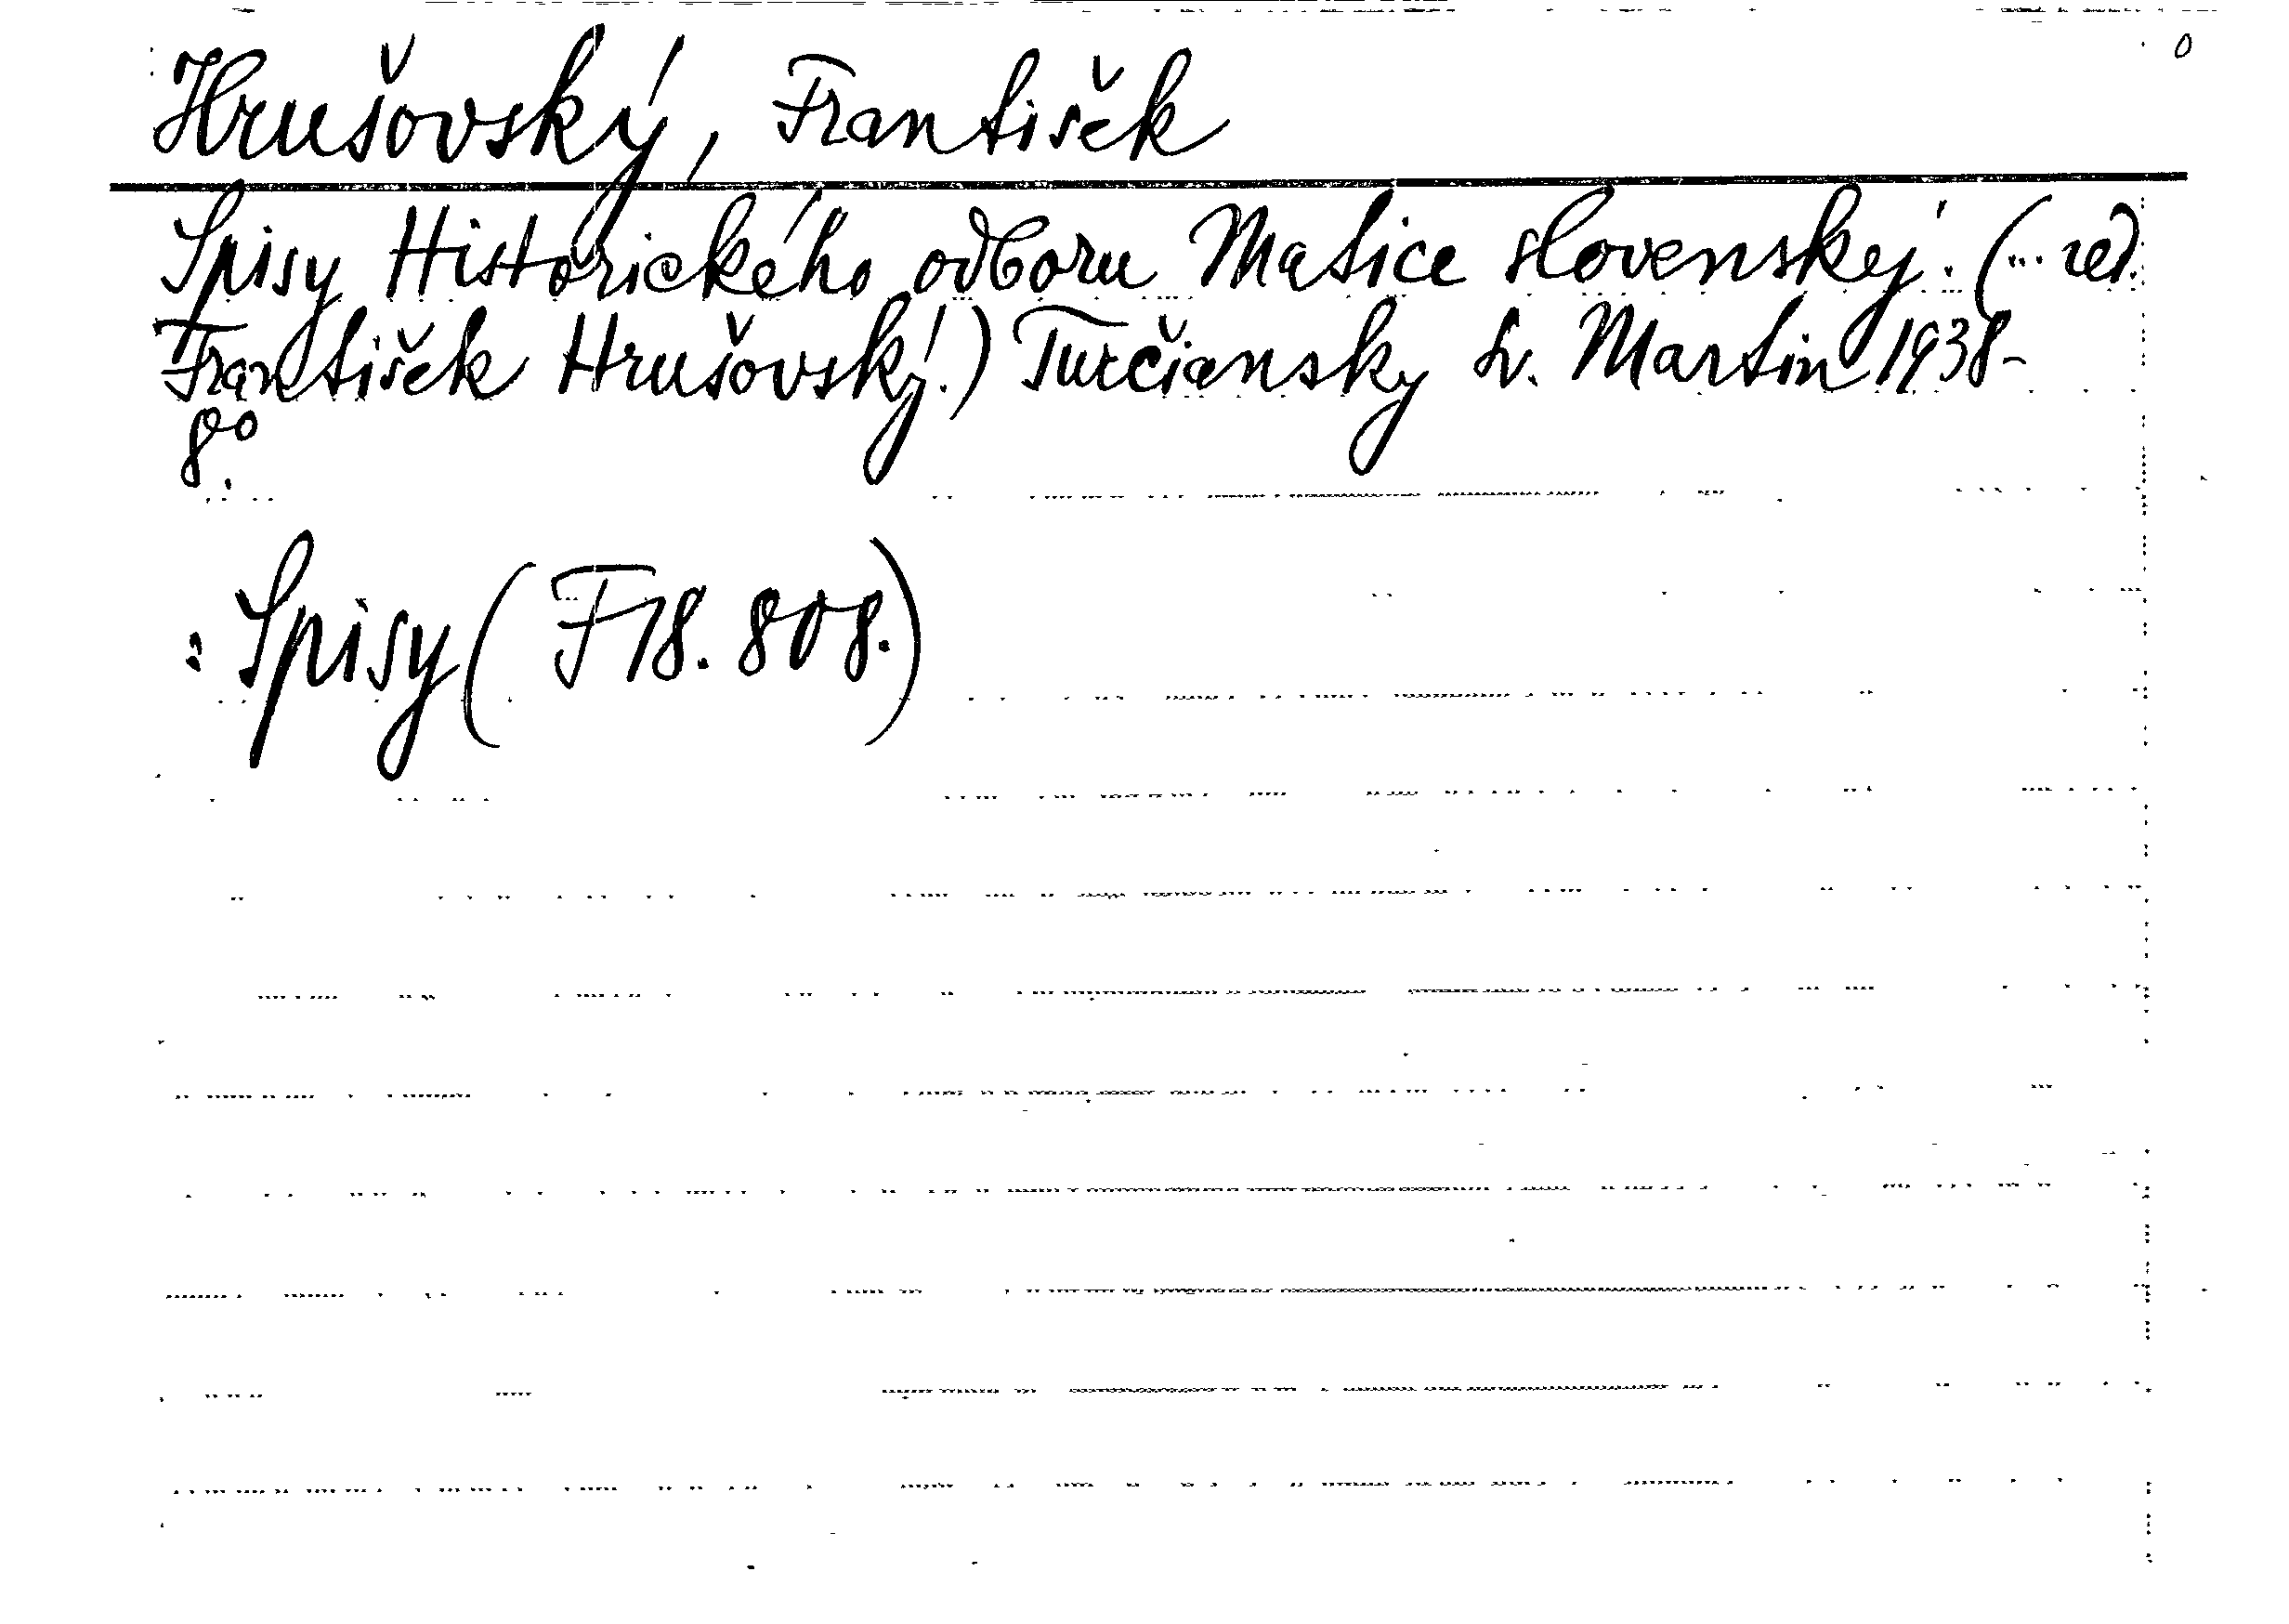 0
Hrušovský, František
Spisy Historického odboru Matice slovenský. (... red.
František Hrušovský.) Turčiansky Sv. Martin 1938-
8°.
: Spisy (F18.808.)